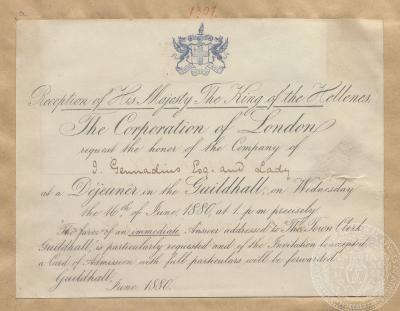 1307
Reception of His Majesty The King of the Hellenes.
The Corporation of London
request the honor of the Company of
J. Gennadius Esq. and Lady
at a Déjeuner in the Guildhall, on Wednesday
the 16th of June, 1880, at 1. p.m precisely
The favor of an immediate Answer addressed to The Town Clerk
Guildhall, is particularly requested and if the Invitation is accepted
a Card of Admission with full particulars will be forwarded
Guildhall,
June 1880.